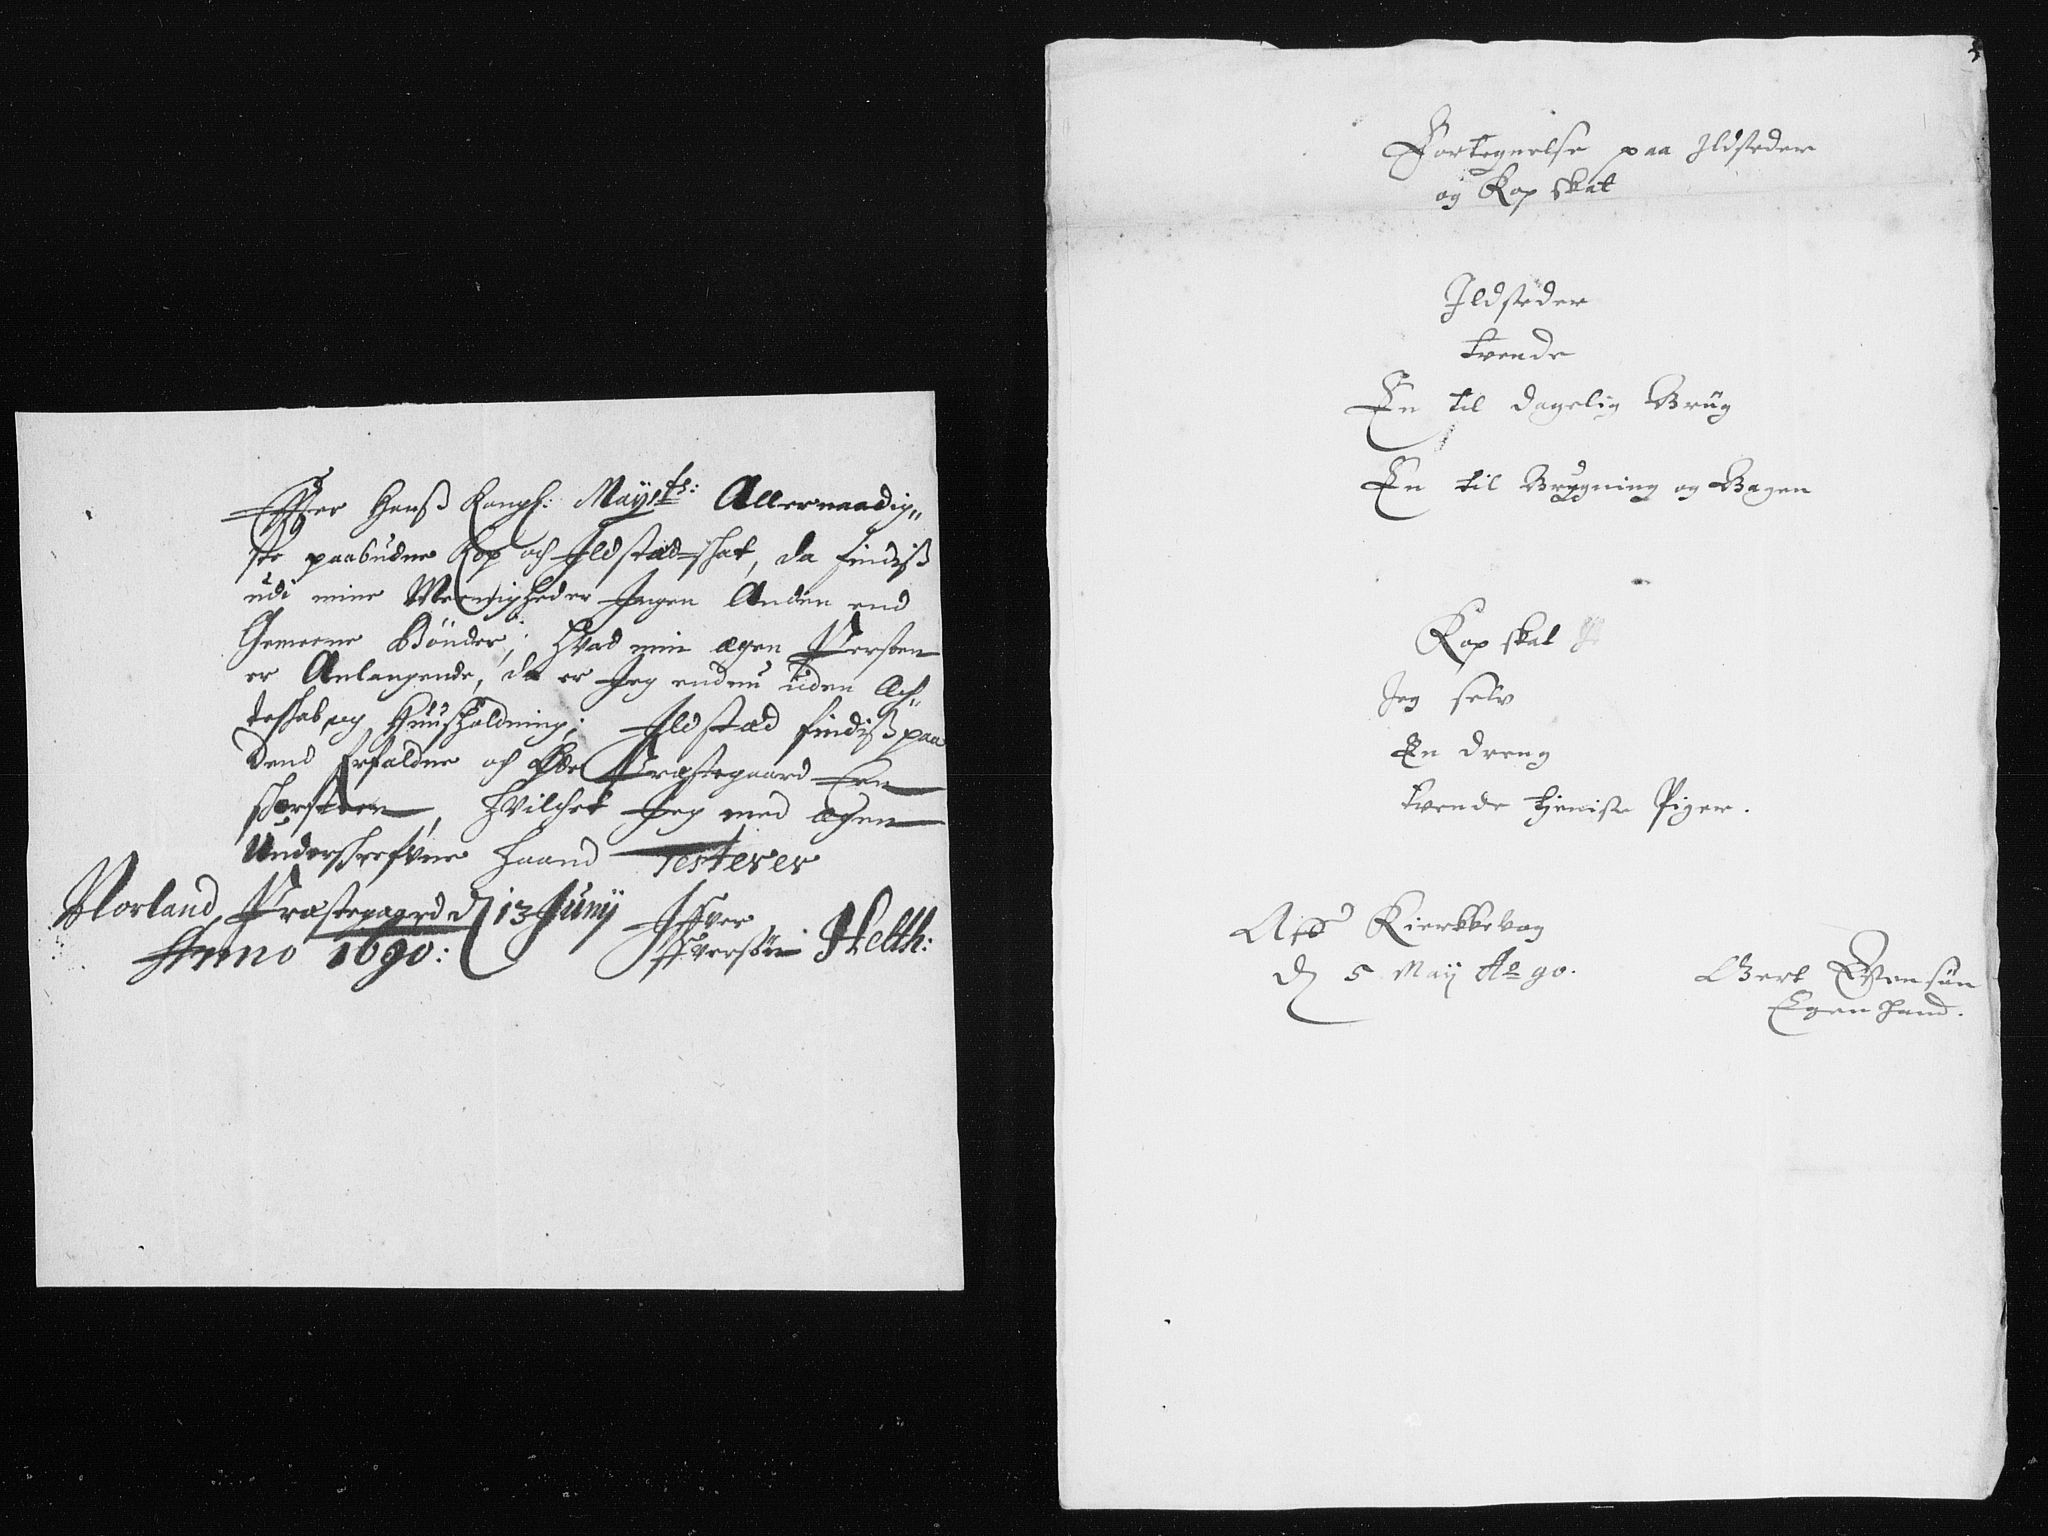 Effter Hanß Kongl: Mayets: Allernaadig„
ste paabudne Kop och Ildstæd-skat, da findiß
udi mine Meenigheder Ingen Anden end
Gemeene Bönder; hvad min egen Person
er Anlangende, da er Jeg endnu uden Ech„
teskab og Huusholdning; Ildstæd findiß paa
dend forfaldne och Præstegaard Een
skorsteen, hvilchet Jeg med egen
Underschrefvne haand Testerer
Norland Præstegaard d 13 Junij Iffver
Anno 1690: Iffversön Helth:
Fortegnelse paa Ildsteder
og Kop skat
Ildsteder
tvende
En til dagelig Brüg
En til Brygning og Bagen
Kop skat
Jeg selv
En dreng
tvende tjeniste Piger.
Kierkkevog
d 5 May Ao 90.
Evensön
Egen hand.